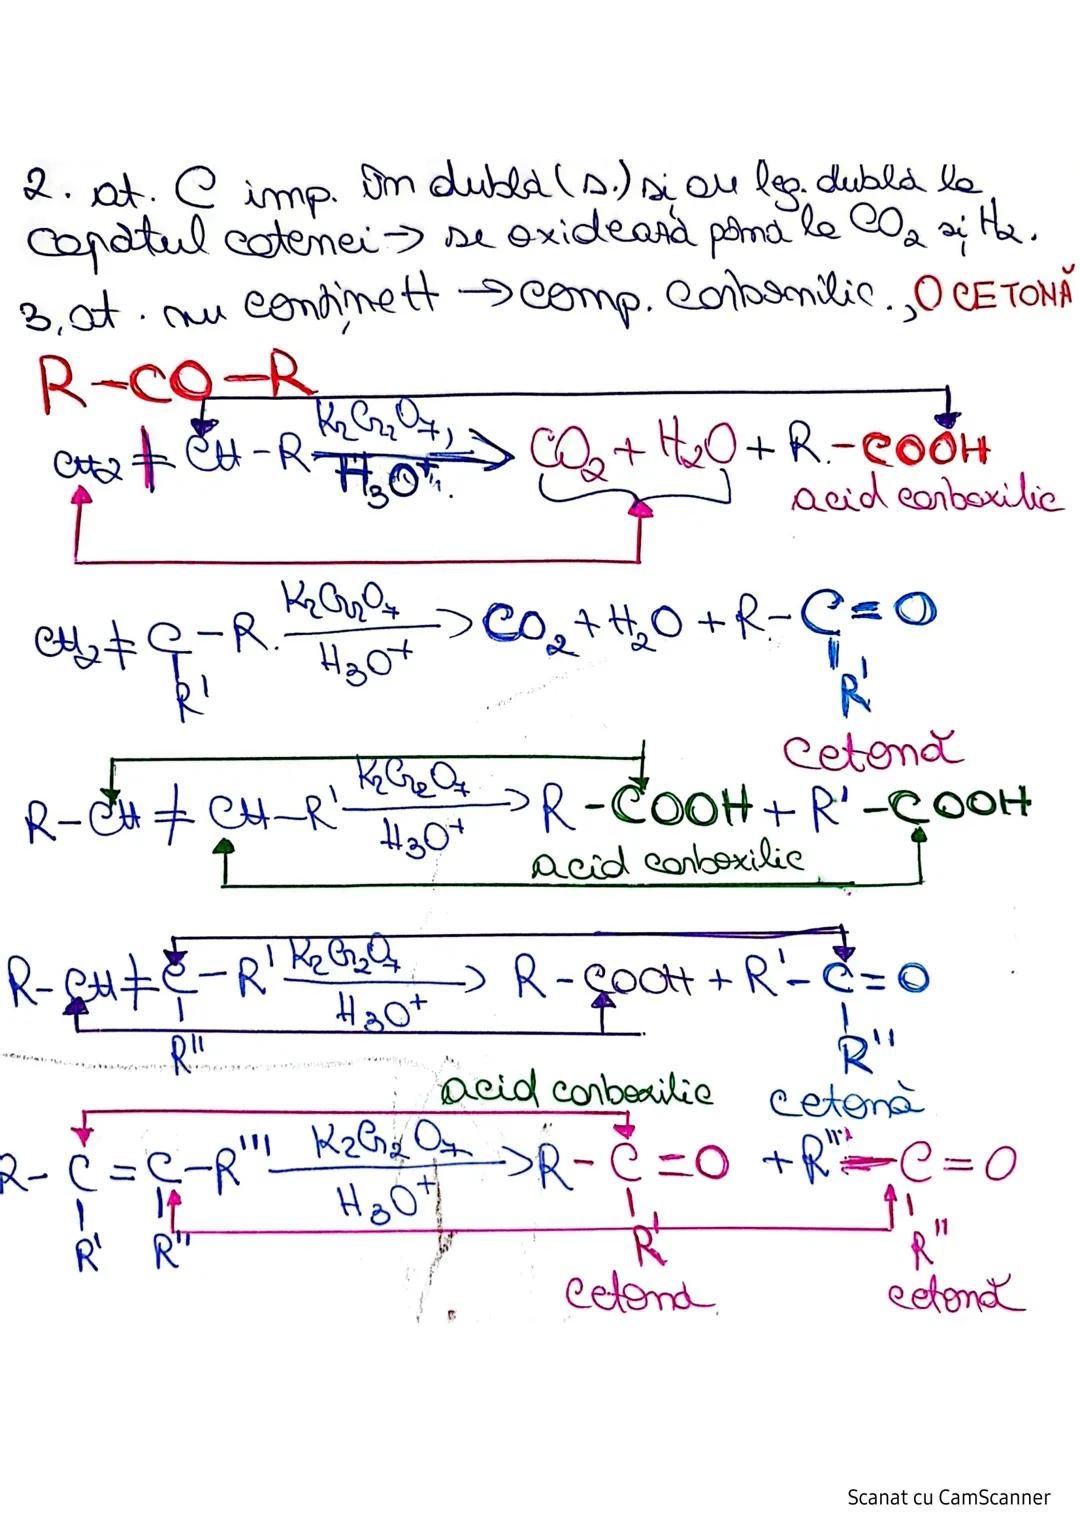 2. at. C imp. în dublă (s.) și are leg. dublă la
capătul catenei → se oxidează până la CO₂ și H₂.
3. at. nu conține H → comp. carbonilic., O CETONĂ
R-CO-R
CH₂ ≠ CH - R K₂Cr₂O₇, H₃O⁺. → CO₂ + H₂O + R.-COOH
acid carboxilic
CH₂ ≠ C - R. K₂Cr₂O₇ H₃O⁺ → CO₂ + H₂O + R - C = O
R' R'
cetonă
R - CH ≠ CH - R' K₂Cr₂O₇ H₃O⁺ → R - COOH + R' - COOH
acid carboxilic
R - CH ≠ C - R' K₂Cr₂O₇ H₃O⁺ → R - COOH + R' - C = O
R'' R''
acid carboxilic cetonă
R - C = C - R''' K₂Cr₂O₇ H₃O⁺ → R - C = O + R''' - C = O
R' R'' R' R''
cetonă cetonă
Scanat cu CamScanner